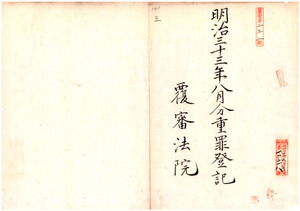 明治三十三年八月分重罪登記
覆審法院